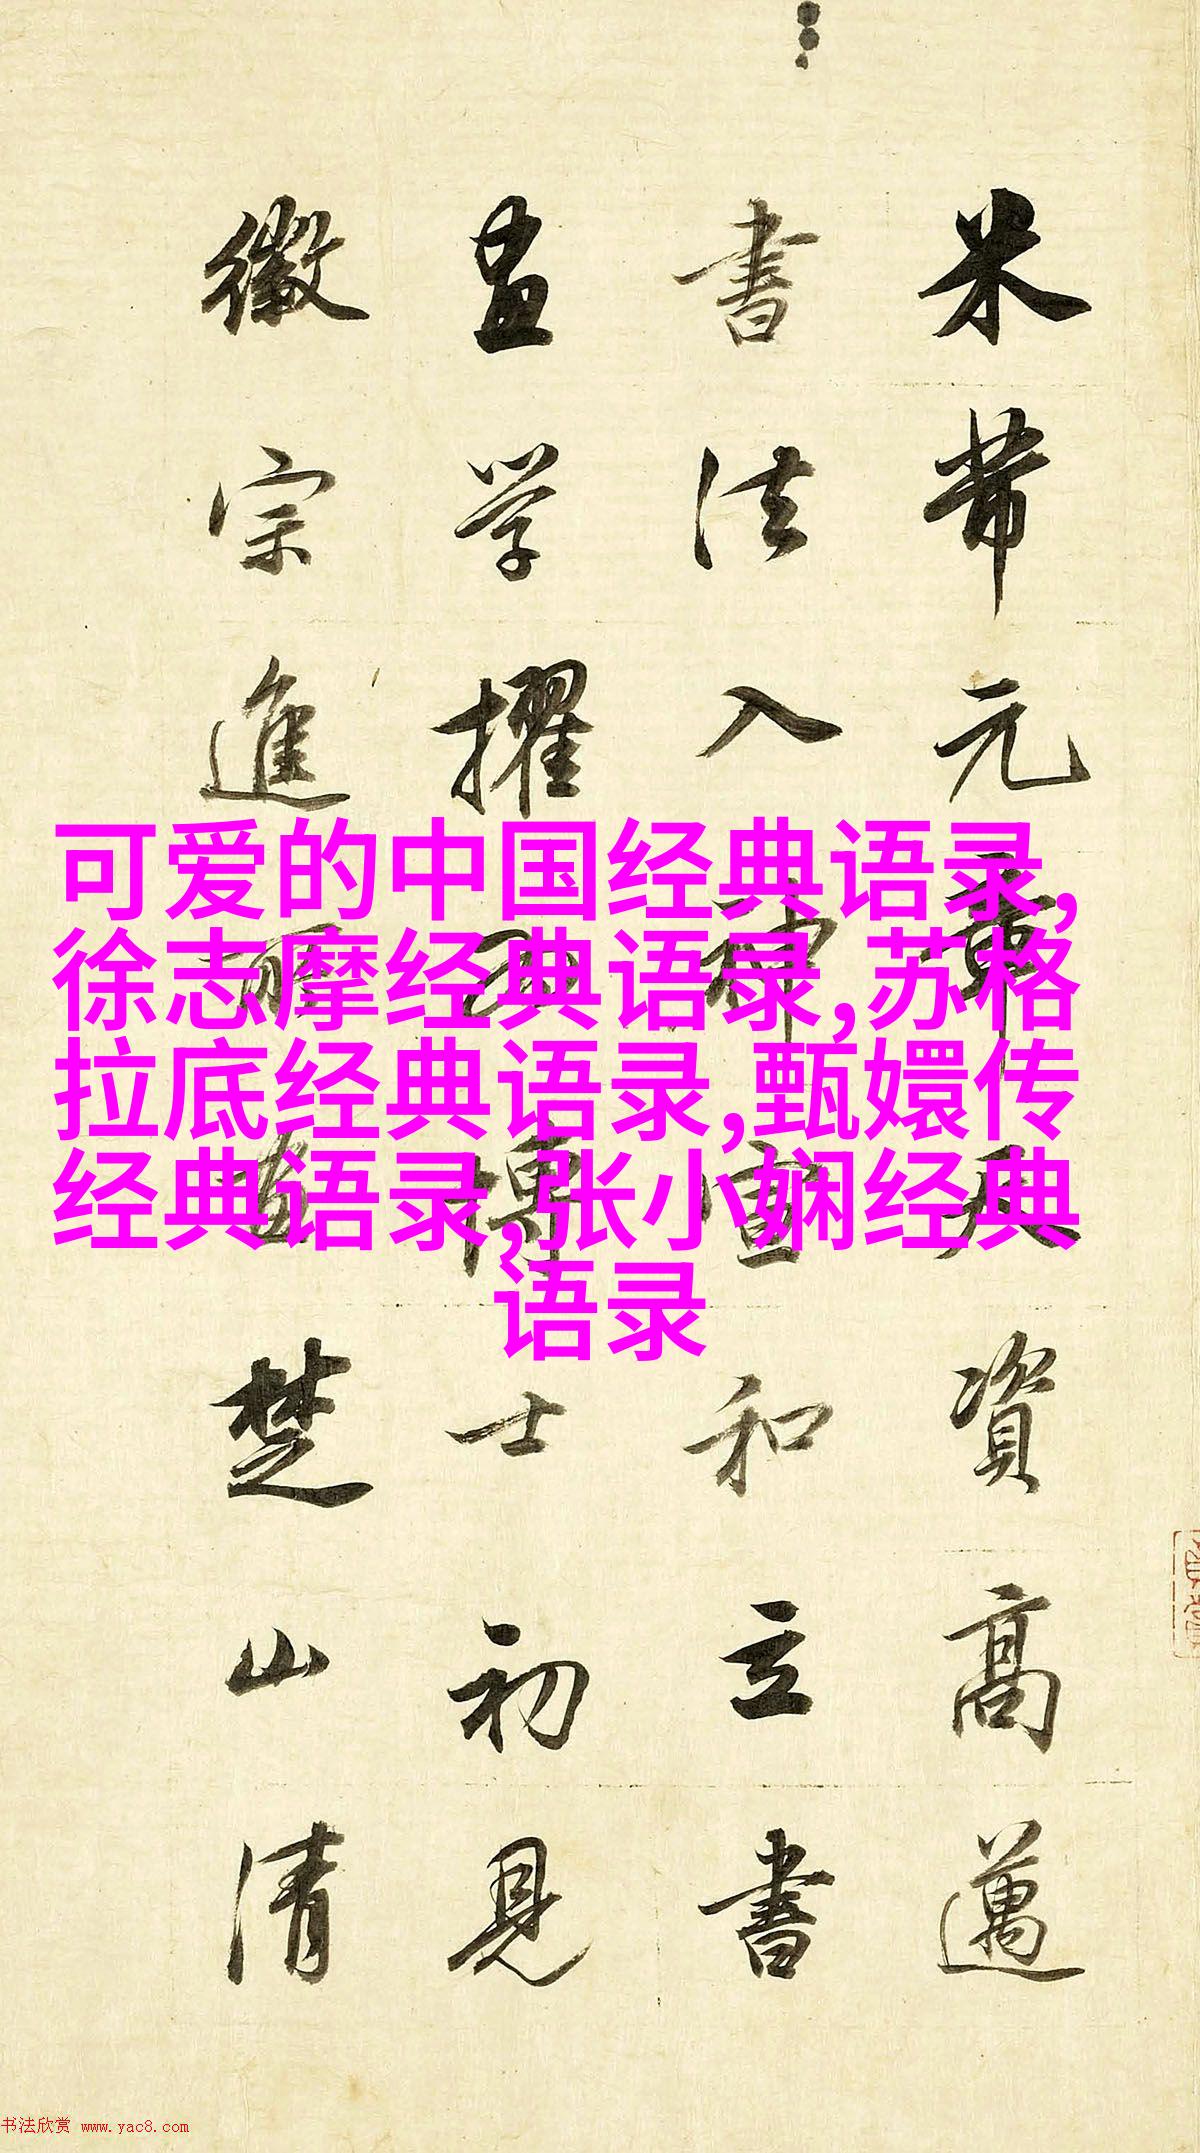 米芾元章天資高邁
書法入神宣和立書
畫学擢為博士初見
徽宗進所畫楚山清
可爱的中国经典语录,
徐志摩经典语录,苏格
拉底经典语录,甄嬛传
经典语录,张小娴经典
语录
书法欣赏 www.yac8.com